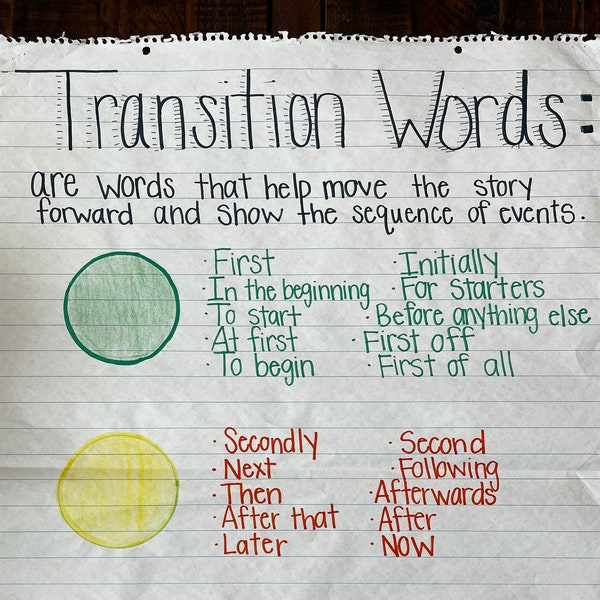 Transition Words:
are words that help move the story
forward and show the sequence of events.
· First
· In the beginning
· To start
· At first
· To begin
· Initially
· For starters
· Before anything else
· First off
· First of all
· Secondly
· Next
· Then
· After that
· Later
· Second
· Following
· Afterwards
· After
· NOW